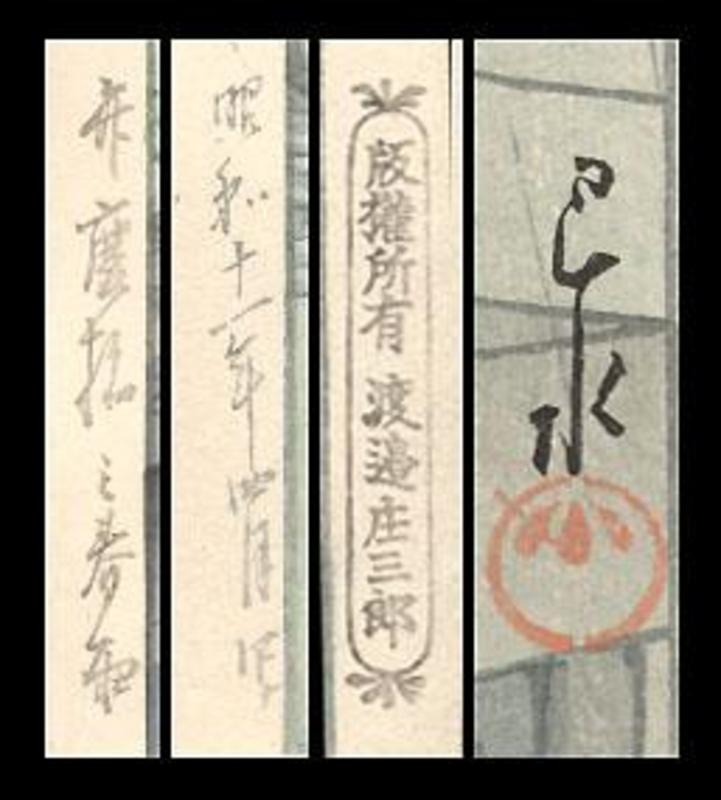 弁慶堀之春
昭和十一年四月作
版權所有 渡邊庄三郎
巴水